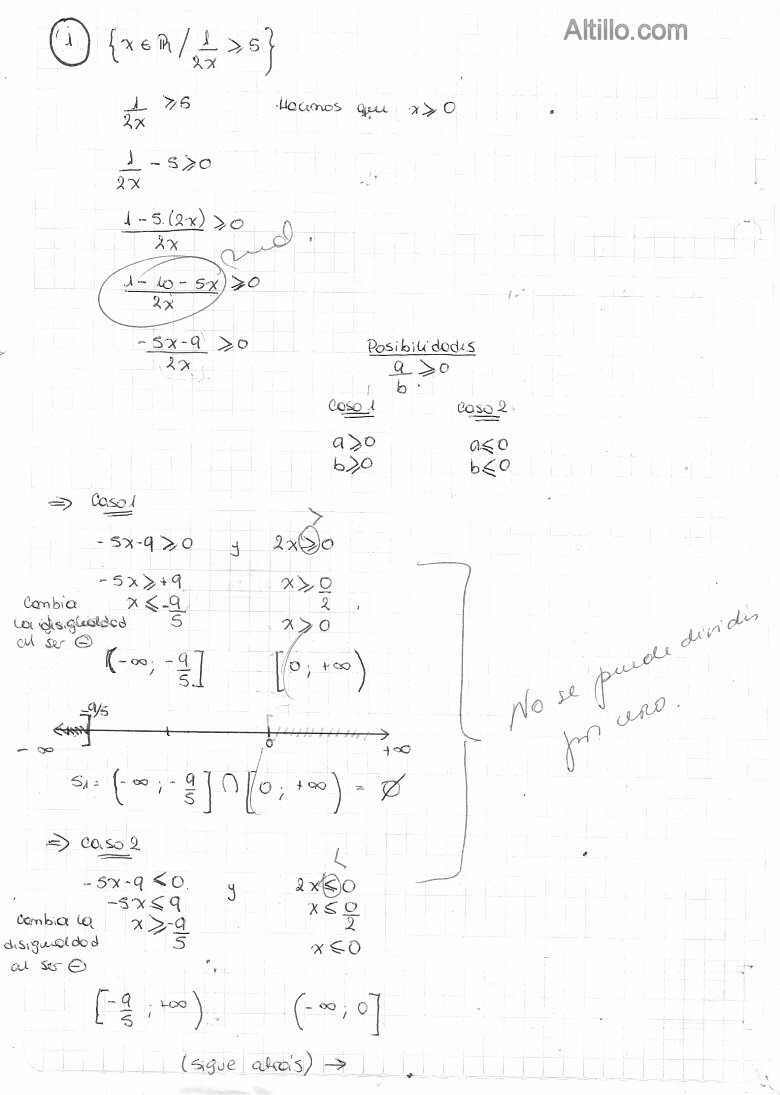 Altillo.com
① {x ∈ ℝ / 1/2x ⩾ 5}
1/2x ⩾ 5 Hacemos que x ⩾ 0
1/2x - 5 ⩾ 0
1 - 5.(2x)/2x ⩾ 0
1 - 10 - 5x/2x ⩾ 0
-5x-9/2x ⩾ 0
Posibilidades
a/b ⩾ 0
Caso 1 Caso 2
a ⩾ 0 a ⩽ 0
b ⩾ 0 b ⩽ 0
⇒ Caso 1
>
-5x-9 ⩾ 0 y 2x ⩾ 0
-5x ⩾ +9 x ⩾ 0/2
Cambia la disigualdad al ser ⊖
x ⩽ -9/5 x ⩾ 0
(-∞ ; -9/5] [0 ; +∞)
No se puede dividir
por cero.
-9/5
-∞ 0 +∞
S1 = (-∞ ; -9/5] ∩ [0 ; +∞) = ∅
⇒ Caso 2
<
-5x-9 ⩽ 0 y 2x ⩽ 0
-5x ⩽ 9 x ⩽ 0/2
Cambia la disigualdad al ser ⊖
x ⩾ -9/5 x ⩽ 0
[-9/5 ; +∞) (-∞ ; 0]
(sigue atrás) →